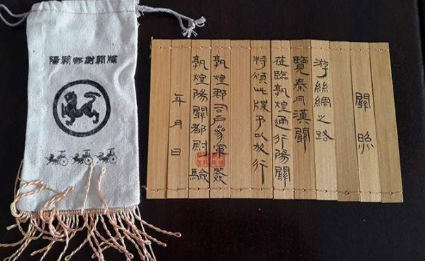 關照
游絲綢之路
覽秦月漢關
莅臨敦煌通行陽關
特頒此牒予以放行
敦煌郡司戶參軍簽
敦煌陽關都尉驗
年月日